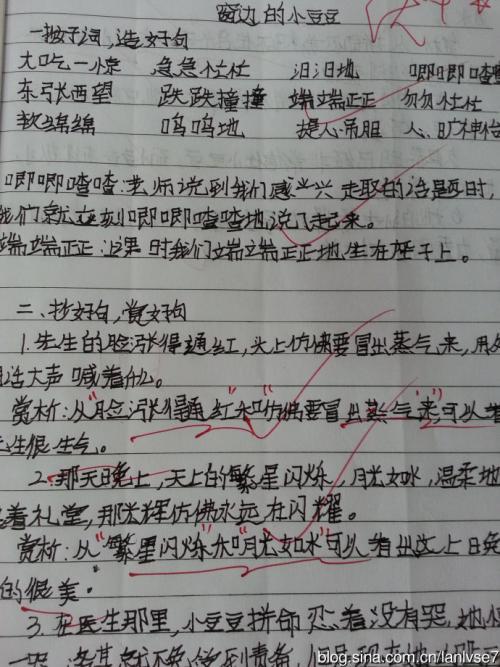 窗边的小豆豆
一、抄好词,造好句
大吃一惊 急急忙忙 汩汩地 唧唧喳
东张西望 跌跌撞撞 端端正正 匆匆忙忙
软绵绵 呜呜地 提心吊胆 人、旷神怡
唧唧喳喳:老师说到我们感兴趣的话题时,
我们就立刻唧唧喳喳地说了起来。
端端正正:上课时我们端端正正地坐在椅子上。
二、抄好句,赏好句
1.先生的脸涨得通红,头上仿佛要冒出蒸气来,用
大声喊着什么。
赏析:从"脸涨得通红"和"仿佛要冒出蒸气来"可以看
生很生气。
2.那天晚上,天上的繁星闪烁,月光如水,温柔地
着礼堂,那光辉仿佛永远在闪耀。
赏析:从"繁星闪烁"和"月光如水"可以看出这上日晚
的很美。
3.在医生那里,小豆豆拼命忍着没有哭,她
blog.sina.com.cn/lanlvse7